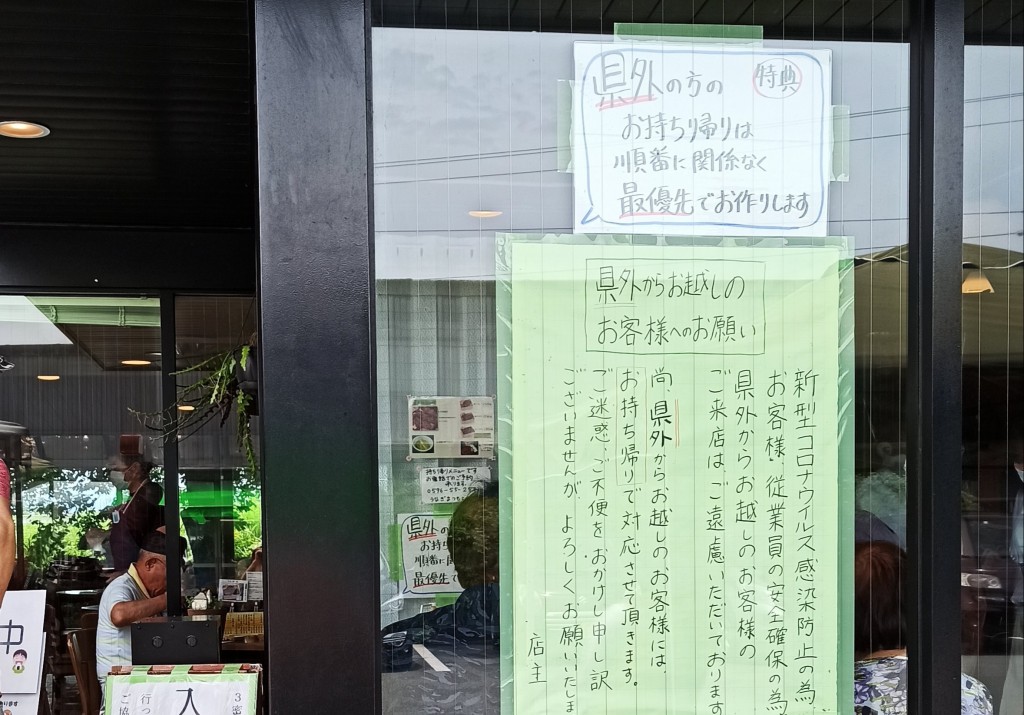 県外の方の
特典
お持ち帰りは
順番に関係なく
最優先でお作りします
県外からお越しの
お客様へのお願い
新型コロナウイルス感染防止の為、
お客様、従業員の安全確保の為
県外からお越しのお客様の
ご来店はご遠慮いただいております
尚県外からお越しのお客様には、
お持ち帰りで対応させて頂きます。
ご迷惑、ご不便をおかけし申し訳
ございませんが、よろしくお願いいたしま
店主
持ち帰りメニューです
お電話でのご予約
承ります
県外の
お持
順番に関
最優先で
中
入
3密
行っ
ご協